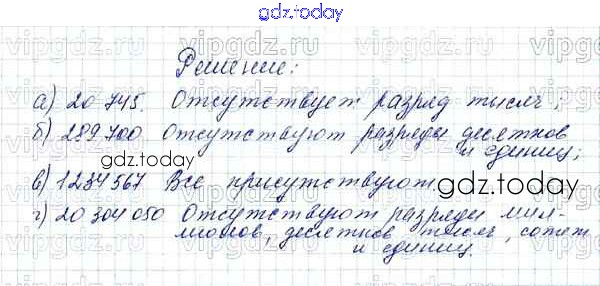 gdz.today
Решение:
а) 20 745. Отсутствует разряд тысяч;
б) 289 700 Отсутствуют разряды десятков
и единиц;
gdz.today
в) 1234567 Все присутствуют
gdz.today
г) 20 304 050 Отсутствуют разряды мил-
лионов, десятков тысяч, сотен
и единиц.